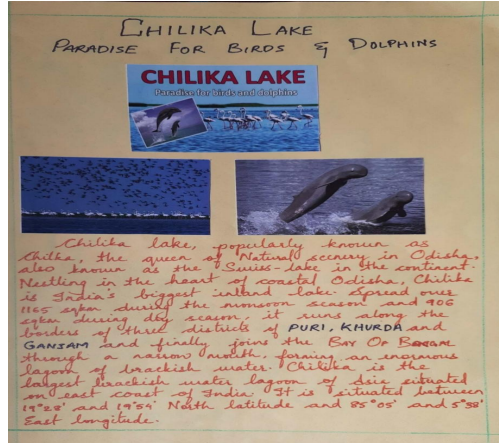 CHILIKA LAKE
PARADISE FOR BIRDS & DOLPHINS
CHILIKA LAKE
Paradise for birds and dolphins
Chilika lake, popularly known as
Chilka, the queen of Natural scenery in Odisha,
also known as the Swiss-lake in the continent.
Nestling in the heart of coastal Odisha, Chilika
is India's biggest inland lake. Spread over
1165 sqkm during the monsoon season and 906
sqkm during dry season, it runs along the
borders of three districts of PURI, KHURDA and
GANJAM and finally joins the BAY OF
through a narrow mouth, forming an enormous
lagoon of brackish water. Chilika is the
largest brackish water lagoon of Asia situated
on east coast of India. It is situated between
19°28' and 19°54' North latitude and 85°05' and 5°38'
East longitude.